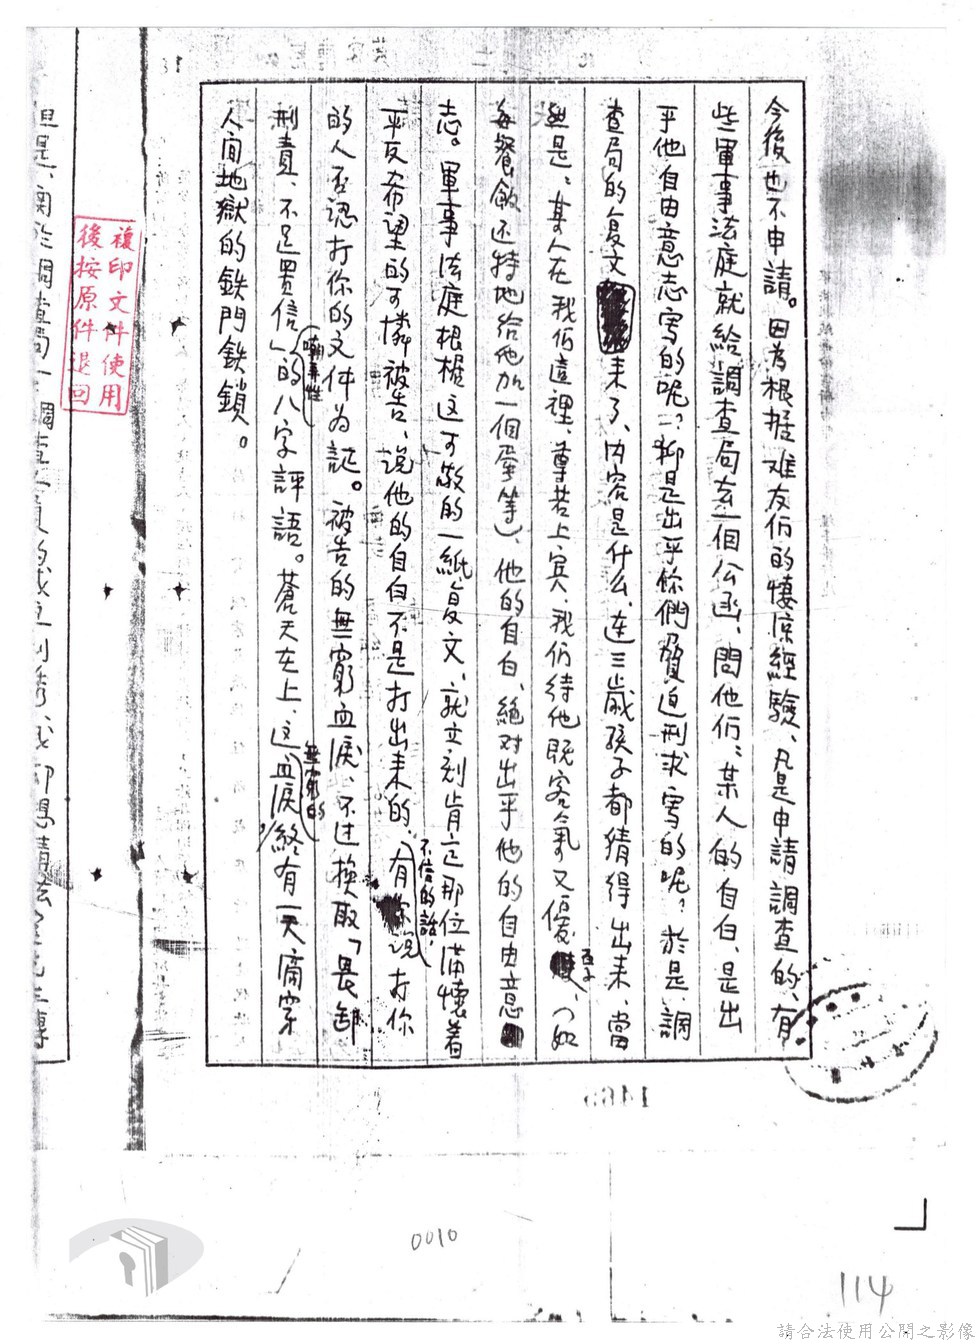 今後也不申請。因為根据难友们的悽涼經驗、凡是申請調查的、有
些軍事法庭就給調查局去一個公函、問他们：某人的自白、是出
乎他自由意志写的呢？抑是出乎你們脅迫刑求写的呢？於是、調
查局的复文来了、内容是什么、连三歲孩子都猜得出来、當
然是：某人在我们這裡、尊若上宾、我们待他既客氣又優、（如
每餐飯还特地给他加一個蛋等）、他的自白、絕对出乎他的自由意
志。軍事法庭根据这可敬的一紙复文、就立刻肯定那位满懷着
平反希望的可憐被告、說他的自白不是打出来的、有不信的話、你說打你
的人否認打你的文件为証。被告的無窮血淚、不过换取「畏卸
刑責、不足置信」的嘲弄性八字評語。蒼天在上、这無窮的血淚終有一天滴穿
人间地獄的鉄門鉄鎖。
但是、関於調查局
複印文件使用
後按原件退回
0010
114
請合法使用公開之影像